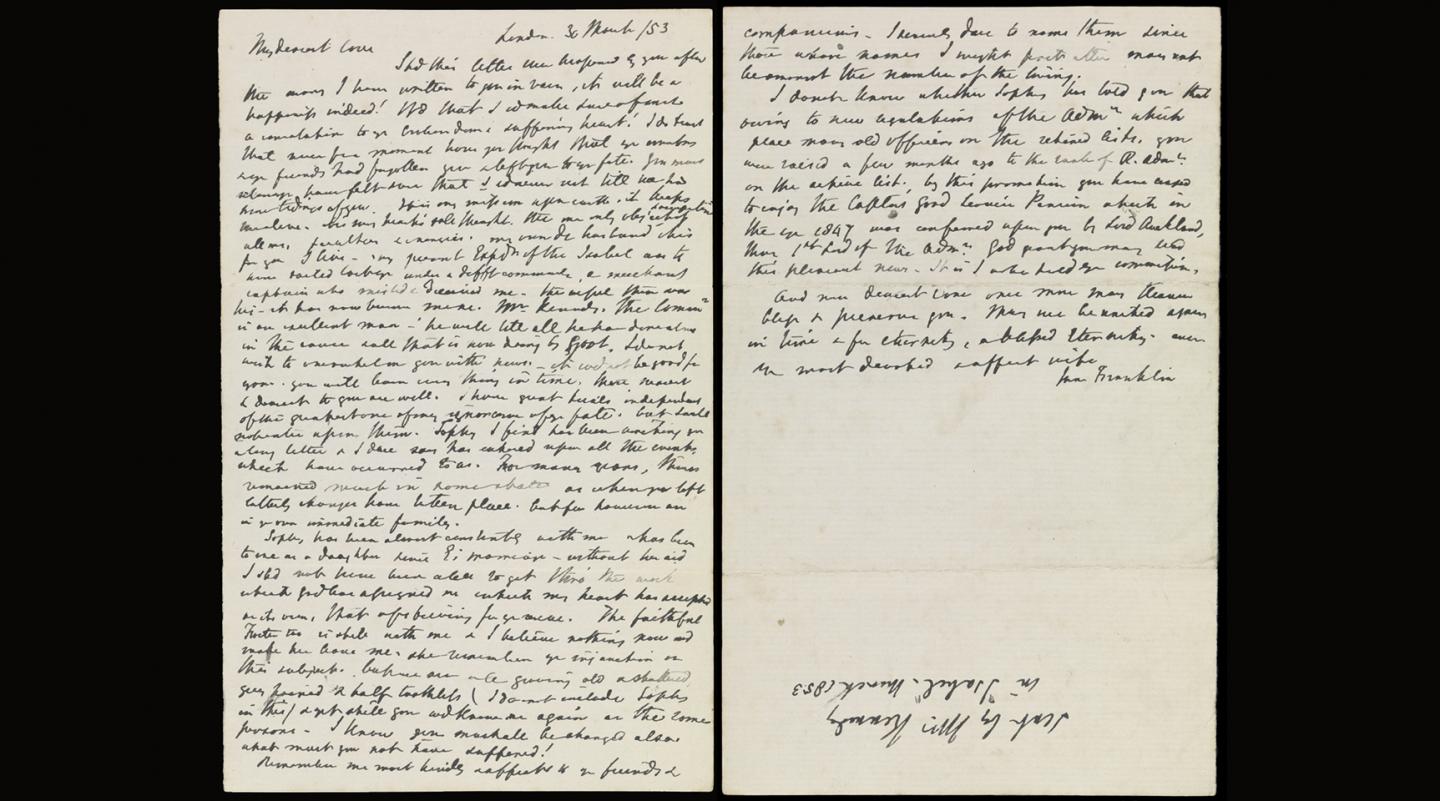 London. 30 March /53
My dearest Love
Shd this letter ever be opened by you after
the many I have written to you in vain, it will be a
happiness indeed! Wd that I cd make sure of such
a consolation to yr suffering heart! I do trust
that never for a moment have you thought that yr
& yr friends had forgotten you & left you to yr fate. You must
always have felt sure that I cd never rest till we had
some tidings of you. It is my mission upon earth, it keeps
me alive. my heart's sole thought. the one only object of
all my faculties & energies. my own dr husband
for you I live – my present Expdn of the Isabel was to
have sailed long ago under a difft command, a merchant
captain who misled & deceived me – the vessel then was
his – it has now become mine. Mr Kennedy the Comr
is an excellent man – he will tell all he has done
in the cause & all that is now doing by Govt. I do not
wish to overwhelm you with news – it wd not be good for
you. you will learn every thing in time. Those nearest
& dearest to you are well. I have great trials independent
of the greatest one of my ignorance of yr fate. but I will
not enter upon them. Sophy I find has been writing you
a long letter & I dare say has entered upon all the events
which have occurred to us. For many years, things
remained much in same state as when you left
latterly changes have taken place. but few however are
in yr own immediate family.
Sophy has been almost constantly with me & has been
to me as a daughter since E's marriage – without her aid
I shd not have been able to get thro' the work
which God has assigned me & which my heart has accepted
as its own, that of striving for yr rescue. The faithful
Foster too is still with me & I believe nothing now wd
make her leave me. she remembers yr injunction on
this subject. but we are all growing old & shattered
grey haired & half toothless (I do not include Sophy
in this) & yet still you wd know me again as the same
persons – I know you must all be changed also &
what must you not have suffered!
Remember me most kindly & affectly to yr friends &
companions – I scarcely dare to name them since
those whose names I might first utter may not
be amongst the number of the living.
I don't know whether Sophy has told you that
owing to new regulations of the Admy which
place many old officers on the retired lists. you
were raised a few months ago to the rank of R. Adml
on the active list. by this promotion you have ceased
to enjoy the Captns' good Service Pension which in
the yr 1847 was conferred upon you by Lord Auckland,
then 1st Lord of the Admy. God grant you may
this pleasant news – It is I who hold yr commission.
And now dearest Love once more may Heaven
bless & preserve you. May we be united again
in time & for eternity, a blessed Eternity. ever
yr most devoted & affect wife
Jane Franklin
Sent by Mr Kennedy
in "Isabel" March 1853